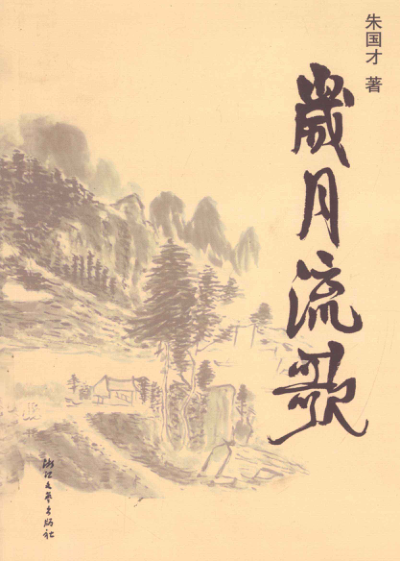 朱国才 著
歲月流歌
浙江文艺出版社